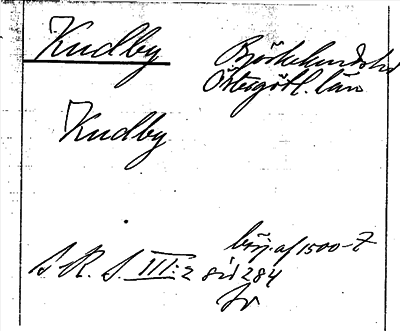 Kudby Björkekinds hd
Östergötl. län
Kudby
börj. af 1500-t
S. R. S. III:2 sid 284